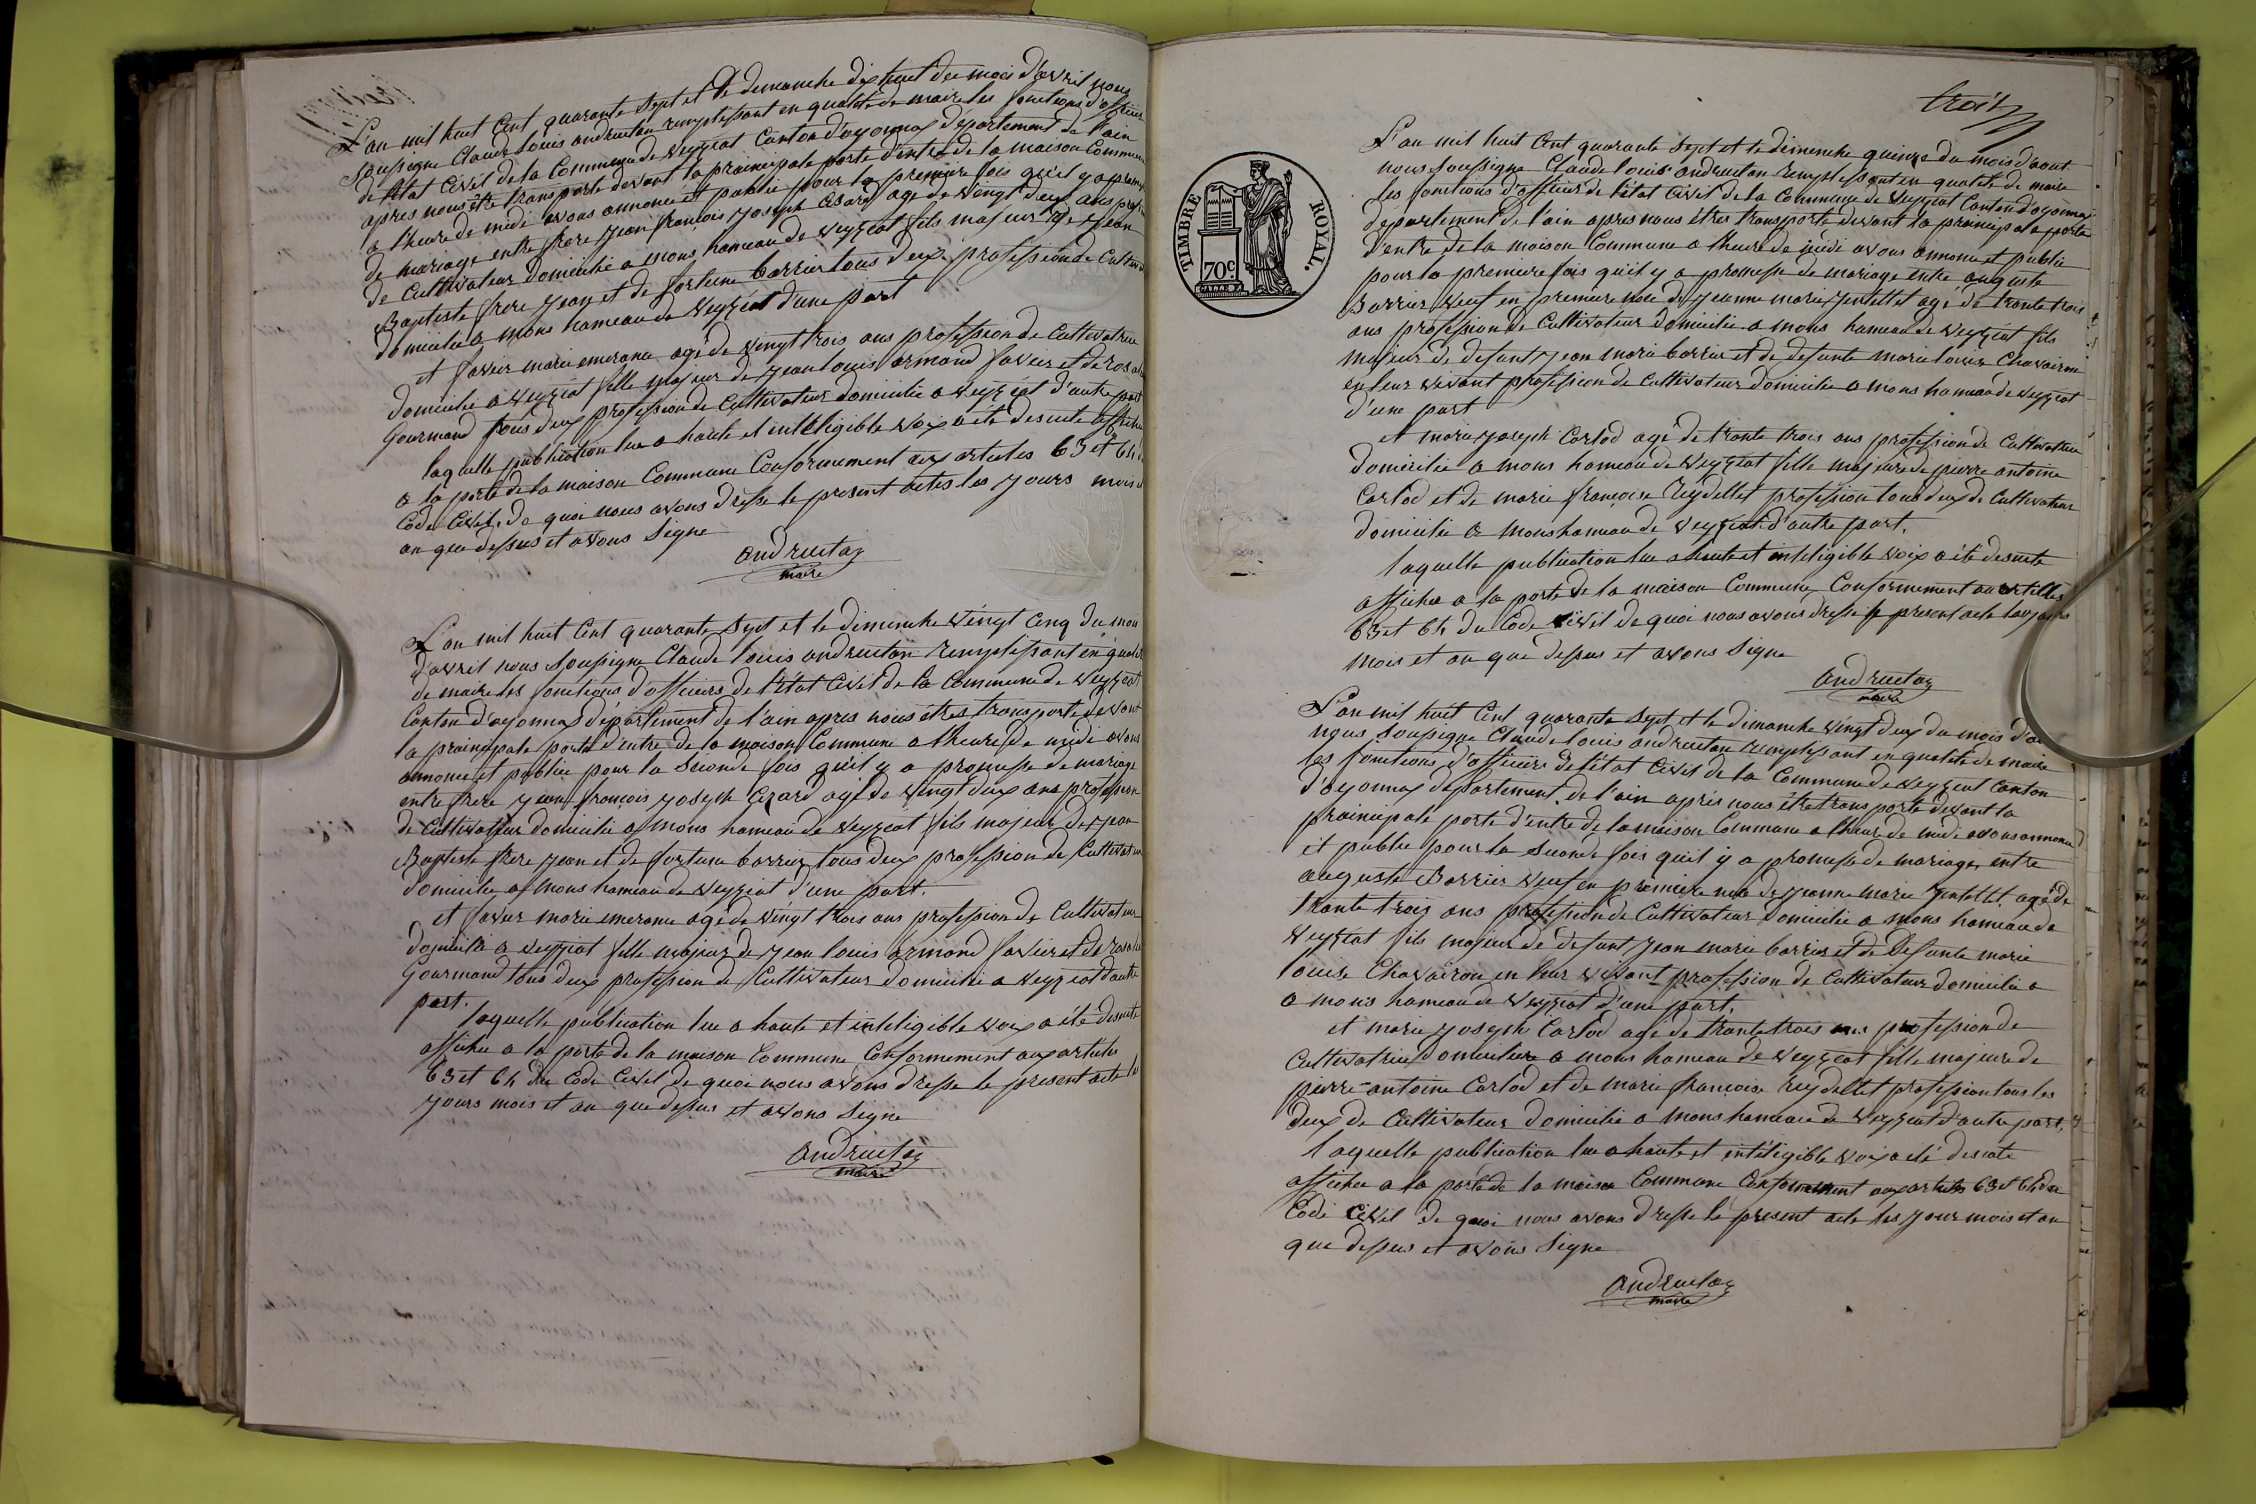 L'an mil huit Cent quarante Sept et le demanche dix huit du mois d'avril nous
Soussigne Claude Louis andruetan remplissant en qualité de maire les fonctions d'officier
de l'état Civil de la Commune de Veyziat Canton d'oyonnax département de l'ain
apres nous être transporte devant la prainsipale porte d'entre de la maison Commune
a l'heure de midi avons annoncé et publié pour la premiere fois qu'il y a promesse
de mariage entre frere Jean françois Joseph Cesard agé de vingt deux ans profession
de Cultivateur domicilié a mons hameau de Veyziat fils majeur de Jean
Baptiste frere Jean et de fortune barrier tous deux profession de Cultivateur
domicilié a mons hameau de Veyziat d'une part
et favier marie emerance agé de vingt trois ans profession de Cultivatrice
domicilié a Veyziat fille majeur de Jean louis armand favier et de rosalie
Gourmand tous deux profession de Cultivateur domicilié a Veyziat d'autre part
laquelle publication lue a haute et intelligible voix a été desuite affichee
a la porte de la maison Commune Conformement aux articles 63 et 64
Code Civil. de quoi nous avons dressé le present actes les jours mois et
an que dessus et avons Signe
andruetan
maire
L'an mil huit Cent quarante Sept et le dimenche vingt cinq du mois
d'avril nous Soussigne Claude louis andruetan remplissant en qualité
de maire les fonctions d'officiers de l'état Civil de la Commune de Veyziat
Canton d'oyonnax département de l'ain apres nous êtres transporte devant
la prainsipale porte d'entre de la maison Commune a l'heure de midi avons
annonce et publiee pour la Seconde fois qu'il y a promesse de mariage
entre frere Jean françois Joseph Cesard agé de vingt deux ans profession
de Cultivateur domicilié a mons hameau de Veyziat fils majeur de Jean
Baptiste frere Jean et de fortune barrier tous deux profession de Cultivateur
domicilié a mons hameau de Veyziat d'une part.
et favier marie emerance agé de vingt trois ans profession de Cultivateur
domicilié a Veyziat fille majeur de Jean louis armand favier et de rosalie
Gourmand tous deux profession de Cultivateur domicilié a Veyziat d'autre
part.
laquelle publication lue a haute et inteligible voix a été desuite
affichee a la porte de la maison Commune Conformement aux articles
63 et 64 du Code Civil de quoi nous avons dresse le present acte le
jours mois et an que dessus et avons Signe
andruetan
maire
trois
TIMBRE ROYAL.
70c
L'an mil huit Cent quarante Sept et le dimenche quinze du mois d'aout
nous Soussigne Claude louis andruetan remplissant en qualité de maire
les fonctions d'officier de l'état Civil de la Commune de Veyziat Canton d'oyonnax
departement de l'ain apres nous êtres transporte devant la prainsipale porte
d'entre de la maison Commune a l'heure de midi avons annonce et publie
pour la premiere fois qu'il y a promesse de mariage entre auguste
Barrier Veuf en premiere noce de Jeanne marie Jentellet agé de trante trois
ans profession de Cultivateur domicilié a mons hameau de Veyziat fils
majeur de defunt Jean marie barrier et de defunte marie louise Chavairon
en leur vivant profession de Cultivateur domicilié a mons hameau de Veyziat
d'une part
et marie Joseph Carlod agé de trante trois ans profession de Cultivatrice
domiciliée a mons hameau de Veyziat fille majeure de pierre antoine
Carlod et de marie françoise Reydellet profession tous deux de Cultivateur
domicilié a Mons hameau de Veyziat d'autre part.
laquelle publication lue a haute et inteligible voix a été desuite
affichee a la porte de la maison Commune Conformement au artilles
63 et 64 du Code Civil de quoi nous avons dresse le present acte les jours
Mois et an que dessus et avons Signe
andruetan
maire
L'an mil huit Cent quarante Sept et le dimanche vingt deux du mois d'a
nous Soussigne Claude louis andruetan remplissant en qualité de maire
les fonctions d'officiers de l'état Civil de la Commune de Veyziat Canton
d'oyonnax departement de l'ain apres nous être transporte devant la
prainsipale porte d'entre de la maison Commune a l'heure de midi avons annonce
et publie pour la Seconde fois qu'il y a promesse de mariage entre
auguste Barrier Veuf en premiere noce de Jeanne Marie Jentellet, agé de
trante trois ans profession de Cultivateur domicilié a mons hameau de
Veyziat fils majeur de defunt Jean marie barrier et de Defunte marie
louise Chavairon en leur vivant profession de Cultivateur domicilié a
a mons hameau de Veyziat d'une part.
et marie Joseph Carlod agé de trante trois ans profession de
Cultivatrice domiciliee a mons hameau de Veyziat fille majeure de
pierre-antoine Carlod et de marie françoise reydellet profession tous les
deux de Cultivateur domicilié a Mons hameau de Veyziat d'autre part.
laquelle publication lue a haute et intéligible voix a été desuite
affichee a la porte de la maison Commune Conformement aux articles 63 et 64 du
Code Civil de quoi nous avons dresse le present acte les jour mois et an
que dessus et avons Signe
andruetan
maire